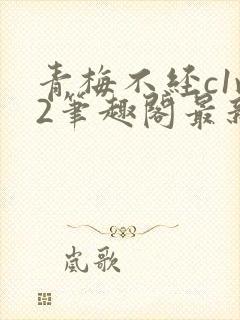 青梅不经c1v
2筆趣阁最新
岚歌